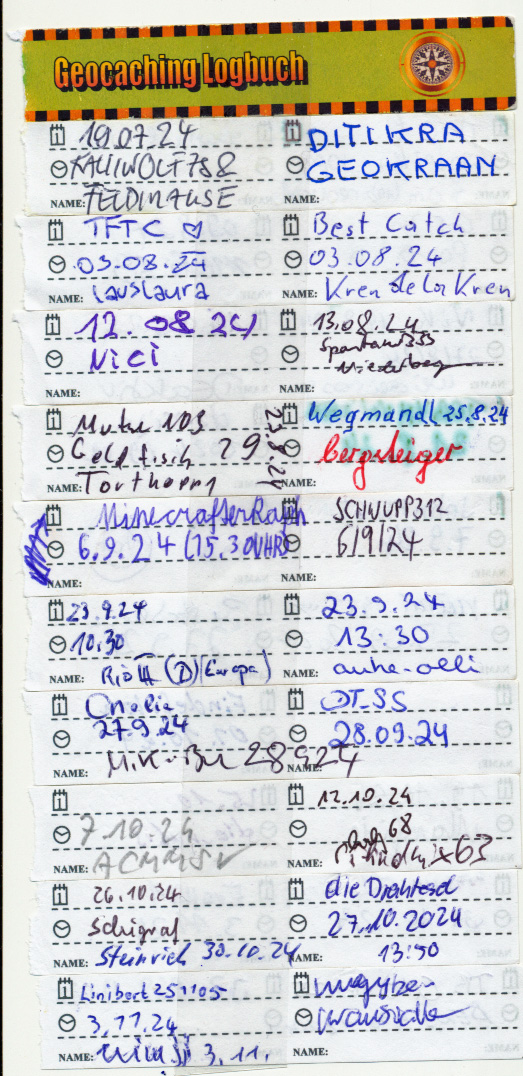 Geocaching Logbuch
19.07.24
KALLIWOLF788
NAME: FELDMAUSE
DITIKRA
GEOKRAAN
NAME:
TFTC ♡
03.08.24
NAME: LausLaura
Best Catch
03.08.24
NAME: Kren de la Kren
12.08.24
Nici
NAME:
13.08.24
Spartan333
NAME:
103
Goldfisch 29.8.24
NAME:
Wegmandl 25.8.24
bergsteiger
MinecrafterRalph
6.9.24 (15.30UHR)
NAME:
SCHWUPP312
6/9/24
NAME:
23.9.24
10:30
NAME: (D) (Europa)
23.9.24
13:30
NAME: anke-olli
27.9.24
NAME: 28.9.24
OT-SS
28.09.24
NAME:
7.10.24
NAME:
12.10.24
68
NAME:
26.10.24
Schigraf
NAME: Steinrich 30.10.24
die Drahtesel
27.10.2024
NAME: 13:50
Linibert251105
3.11.24
NAME: 3.11.
NAME: